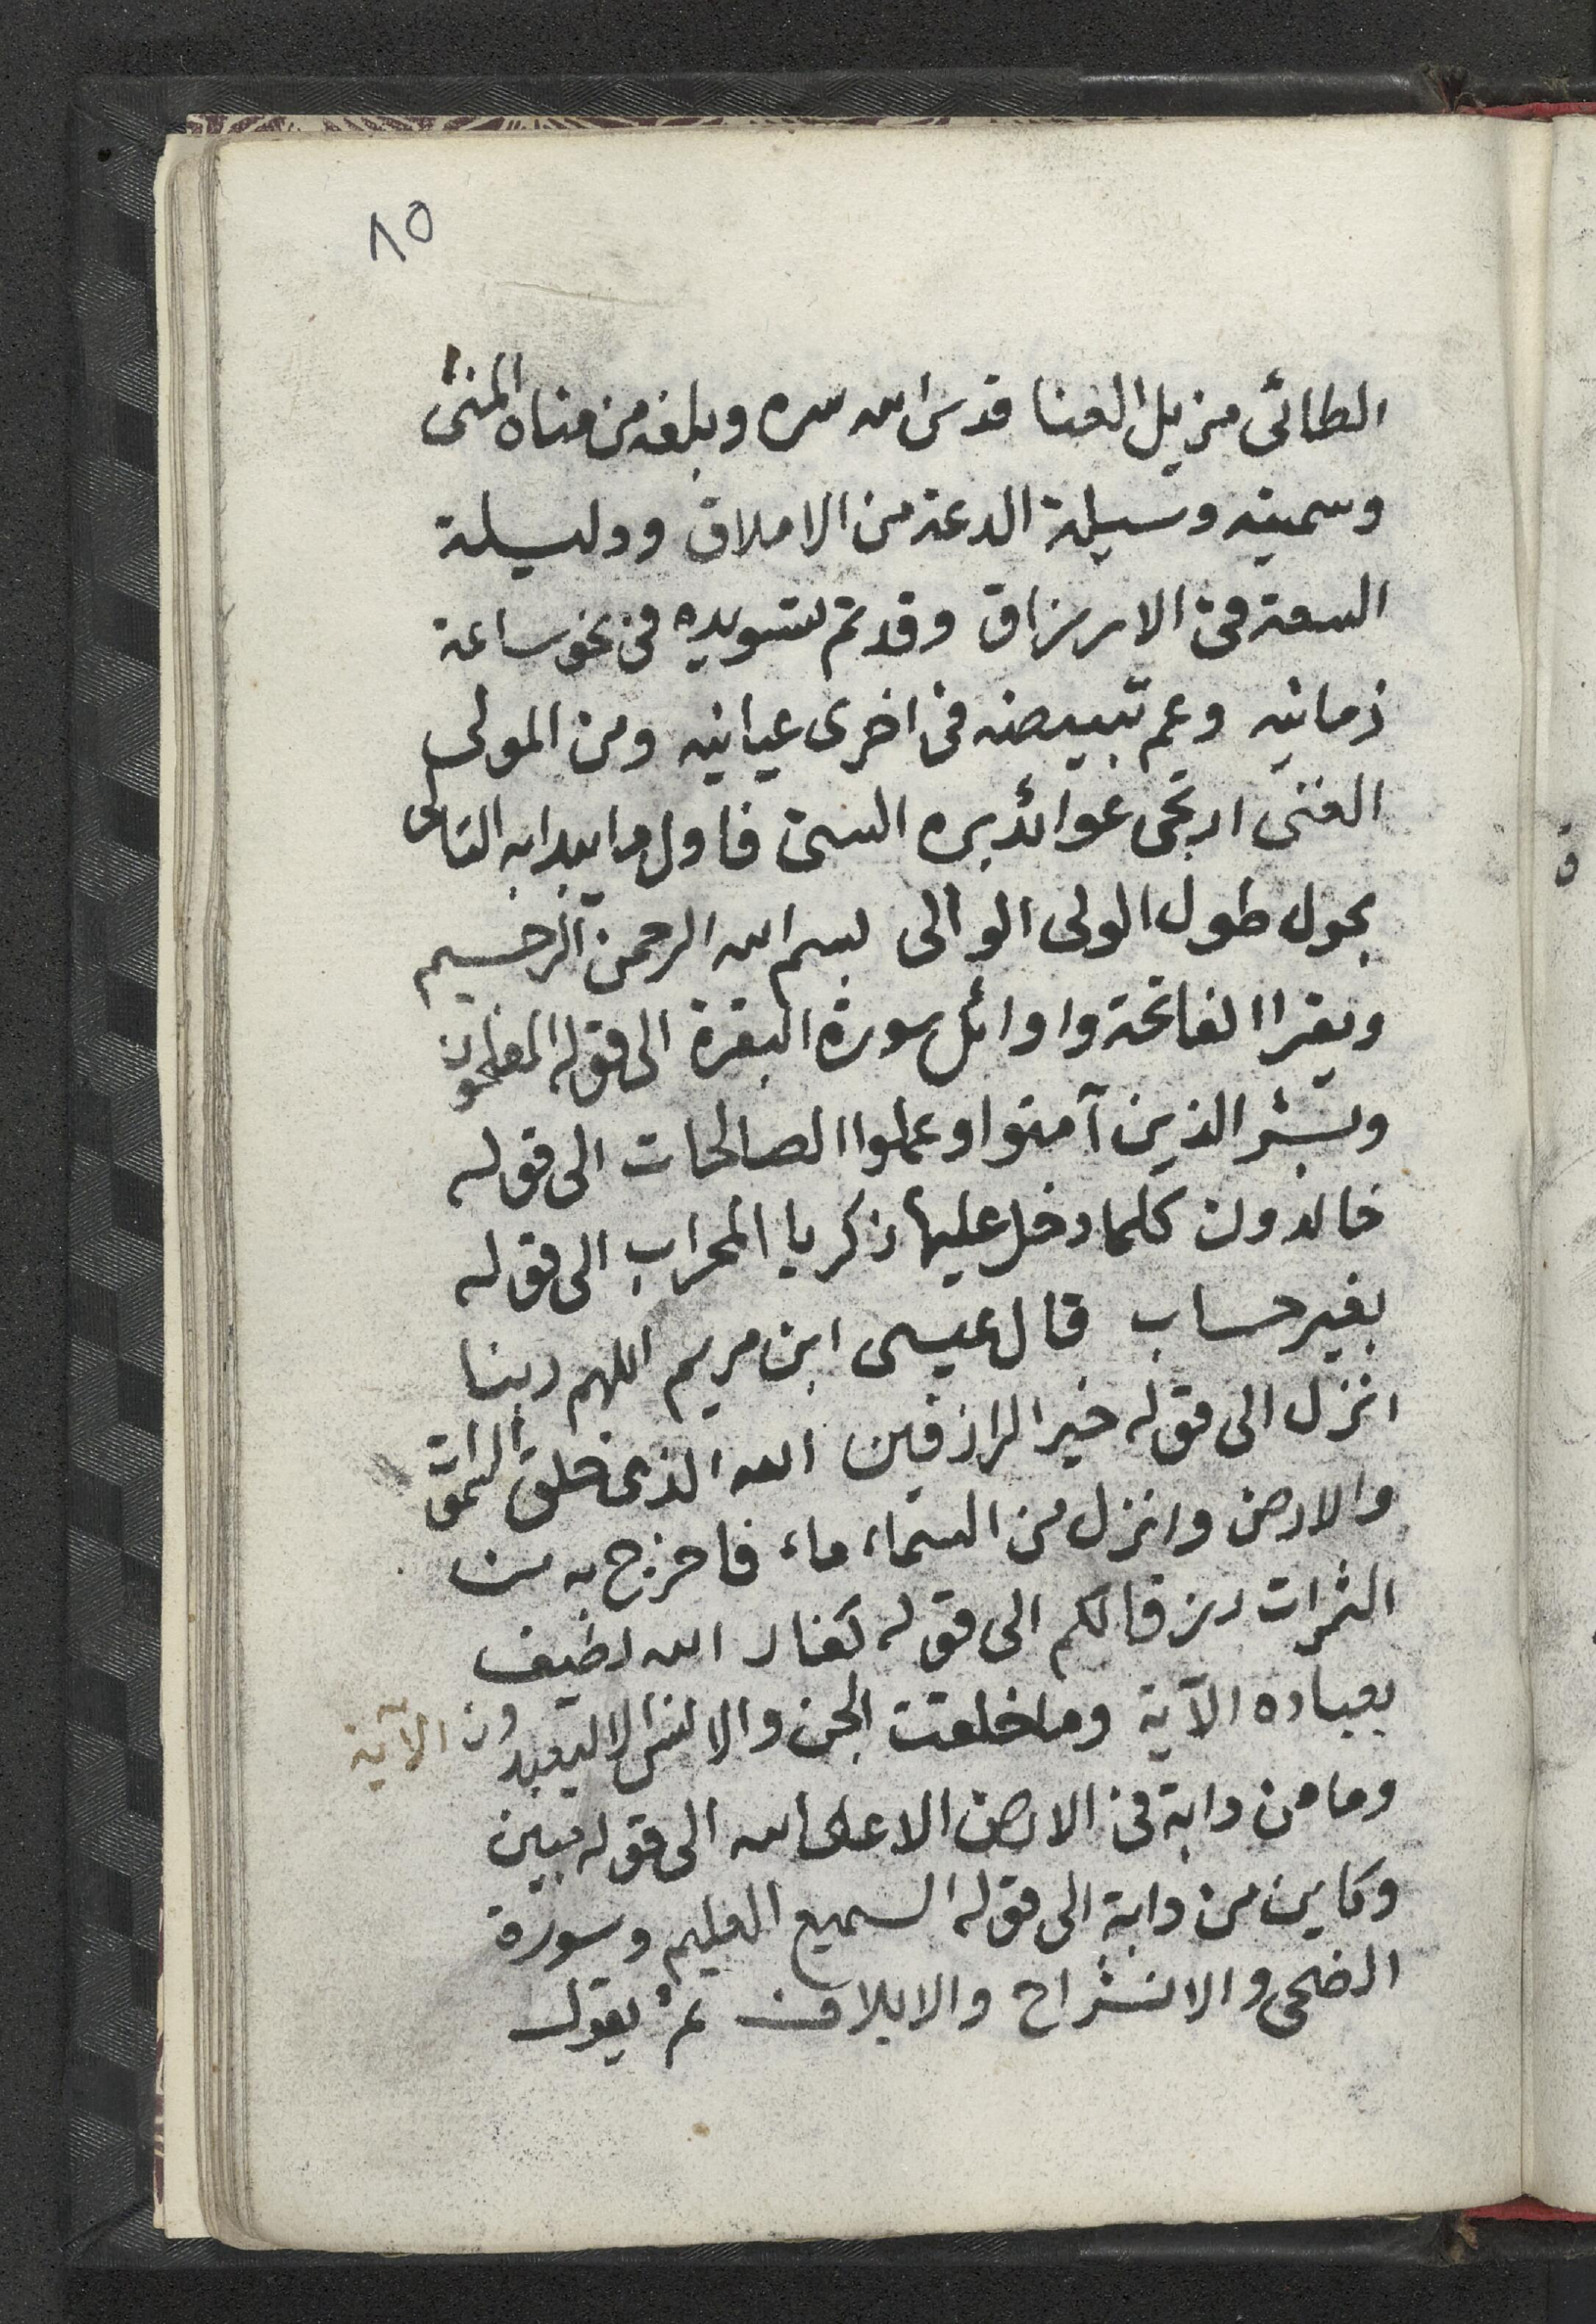 ٨٥
الطائى مزيل العنا قدس الله سره وبلغه من مناه المنى
وسميته وسيلة الدعة من الاملاق ووليسلة
السعة فى الارزاق وقد تم تسويده فى نحو ساعة
زمانيه وعم تبييضه فى اخرى عيانيه ومن المولى
الغنى ارتجى عوائد بره السنى فاول ما يبدا به التالى
بحول طول الولى الوالى بسم الله الرحمن الرحيم
ويقرا الفاتحة واوائل سورة البقرة الى قوله المفلحون
وبشر الذين آمنوا وعملوا الصالحات الى قوله
خالدون كلما دخل عليها زكريا المحراب الى قوله
بغير حساب قال عيسى ابن مريم اللهم ربنا
انزل الى قوله خير الرازقين الله الذى خلق السموات
والارض وانزل من السماء ماء فاخرج به من
الثمرات رزقا لكم الى قوله كفار الله لطيف
بعباده الآية وما خلقت الجن والانس الا ليعبدون الآية
وما من دابة فى الارض الا على الله الى قوله مبين
وكاين من دابة الى قوله السميع العليم وسورة
الضحى والانشراح والايلاف ثم يقول